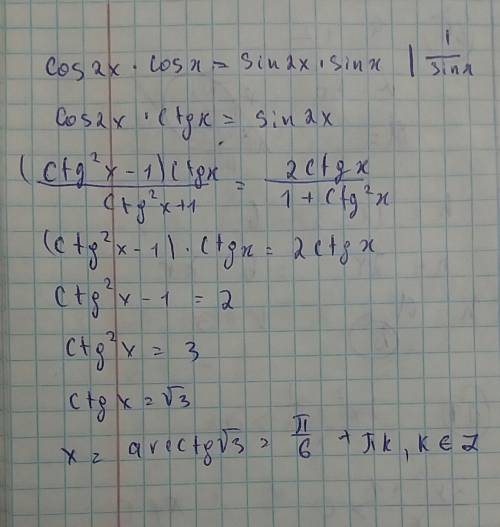 cos2x · cosx = sin2x · sinx | 1/sinx
cos2x · ctgx = sin2x
(ctg²x - 1)ctgx / ctg²x+1 = 2ctgx / 1+ctg²x
(ctg²x-1) · ctgx = 2ctgx
ctg²x - 1 = 2
ctg²x = 3
ctgx = √3
x = arcctg√3 = π/6 + πk, k ∈ Z